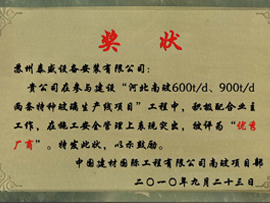 奖状
苏州泰威设备安装有限公司：
贵公司在参与建设“河北南玻600t/d、900t/d
两条特种玻璃生产线项目”工程中，积极配合业主
工作，在施工安全管理上表现突出，被评为“优秀
厂商”。特发此状，以示鼓励。
中国建材国际工程有限公司南玻项目部
二〇一〇年九月二十三日